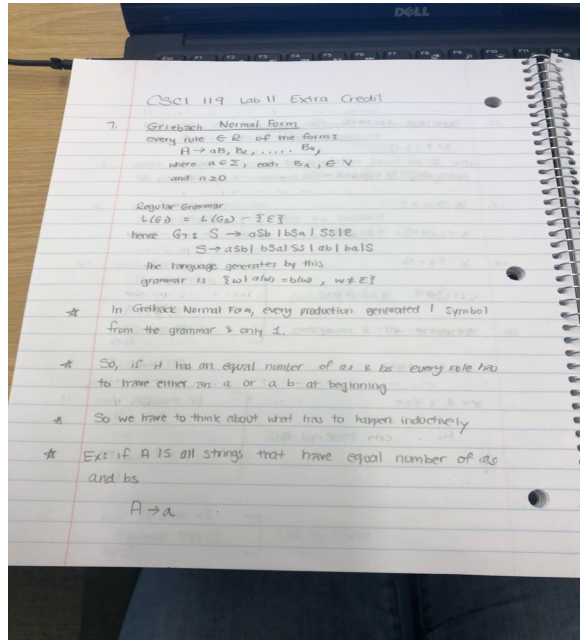 DELL
CSCI 119 Lab 11 Extra Credit
7. Griebach Normal Form
every rule ∈ R of the form:
A → aB, B₂, ..... Bₙ,
where a ∈ Σ, each Bₙ, ∈ V
and n ≥ 0
Regular Grammar
L(G₁) = L(G₂) - {ε}
hence G₁: S → aSb | bSa | SS | ε
S → aSb | bSa | SS | ab | ba | S
the language generates by this
grammar is {w | a(w) = b(w), w ≠ ε}
☆ In Greiback Normal Form, every production generated 1 symbol
from the grammar & only 1.
☆ So, if it has an equal number of as & bs every rule has
to have either an a or a b at beginning
☆ So we have to think about what has to happen inductively
☆ Ex: if A is all strings that have equal number of as
and bs
A → a